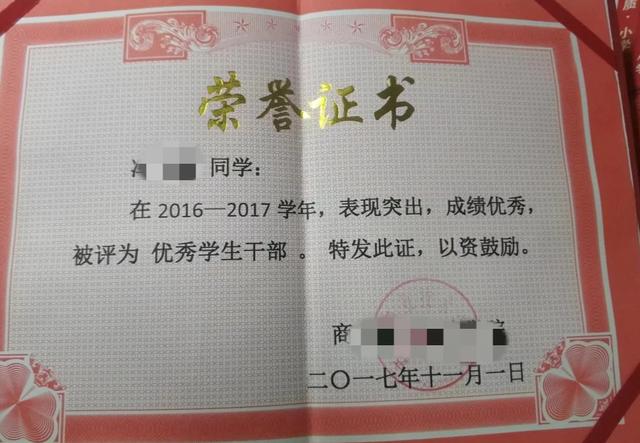 荣誉证书
同学：
在 2016—2017 学年，表现突出，成绩优秀，
被评为 优秀学生干部 。 特发此证，以资鼓励。
商
二〇一七年十一月一日